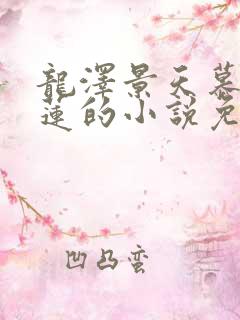 龍澤景天慕
蓮的小說免
凹凸蛮